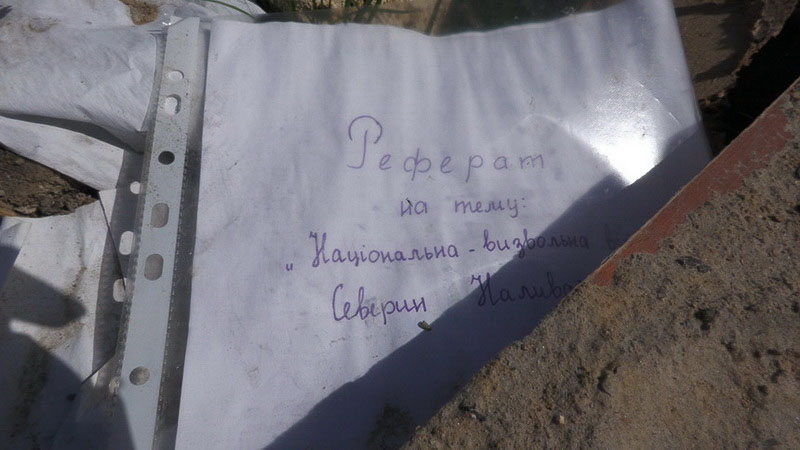 Реферат
на тему:
„Національна - визвольна в
Северин Налива